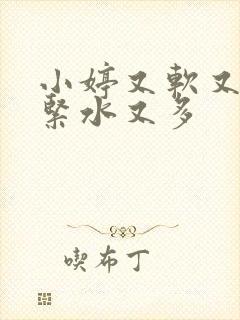 小婷又軟又
緊水又多
喫布丁